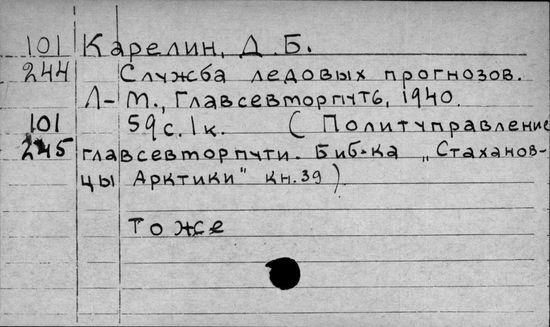 101 Карелин, Д. Б.
244 Служба ледовых прогнозов.
Л-М., Главсевторпуть, 1940.
101 59с. 1к. (Политуправление
245 главсевторпути. Биб-ка „Стаханов-
цы Арктики" кн. 39)
То же